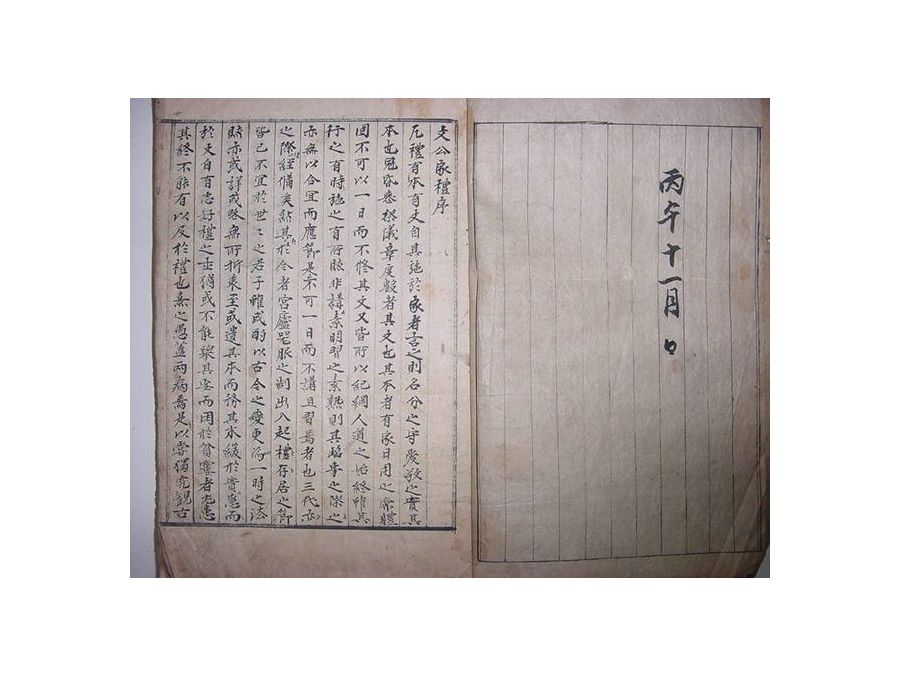 丙午十一月 日
文公家禮序
凡禮有本有文自其施於家者言之則名分之守愛敬之實其
本也冠昏喪祭儀章度數者其文也其本者有家日用之常體
固不可以一日而不修其文又皆所以紀綱人道之始終雖其
行之有時施之有所然非講素明習之素熟則其臨事之際之
亦無以合宜而應節是不可一日而不講且習焉者也三代亦
之際經備矣然其於今者宮廬器服之制出入起禮存居之節
皆已不宜於世々之君子雖或酌以古今之變更為一時之法
然亦或詳或略無所折衷至或遺其本而務其末緩於實急而
於文自有志好禮之士猶或不能舉其要而困於貧窶者尤患
其終不能有以及於禮也熹之愚蓋兩病焉是以嘗獨究觀古